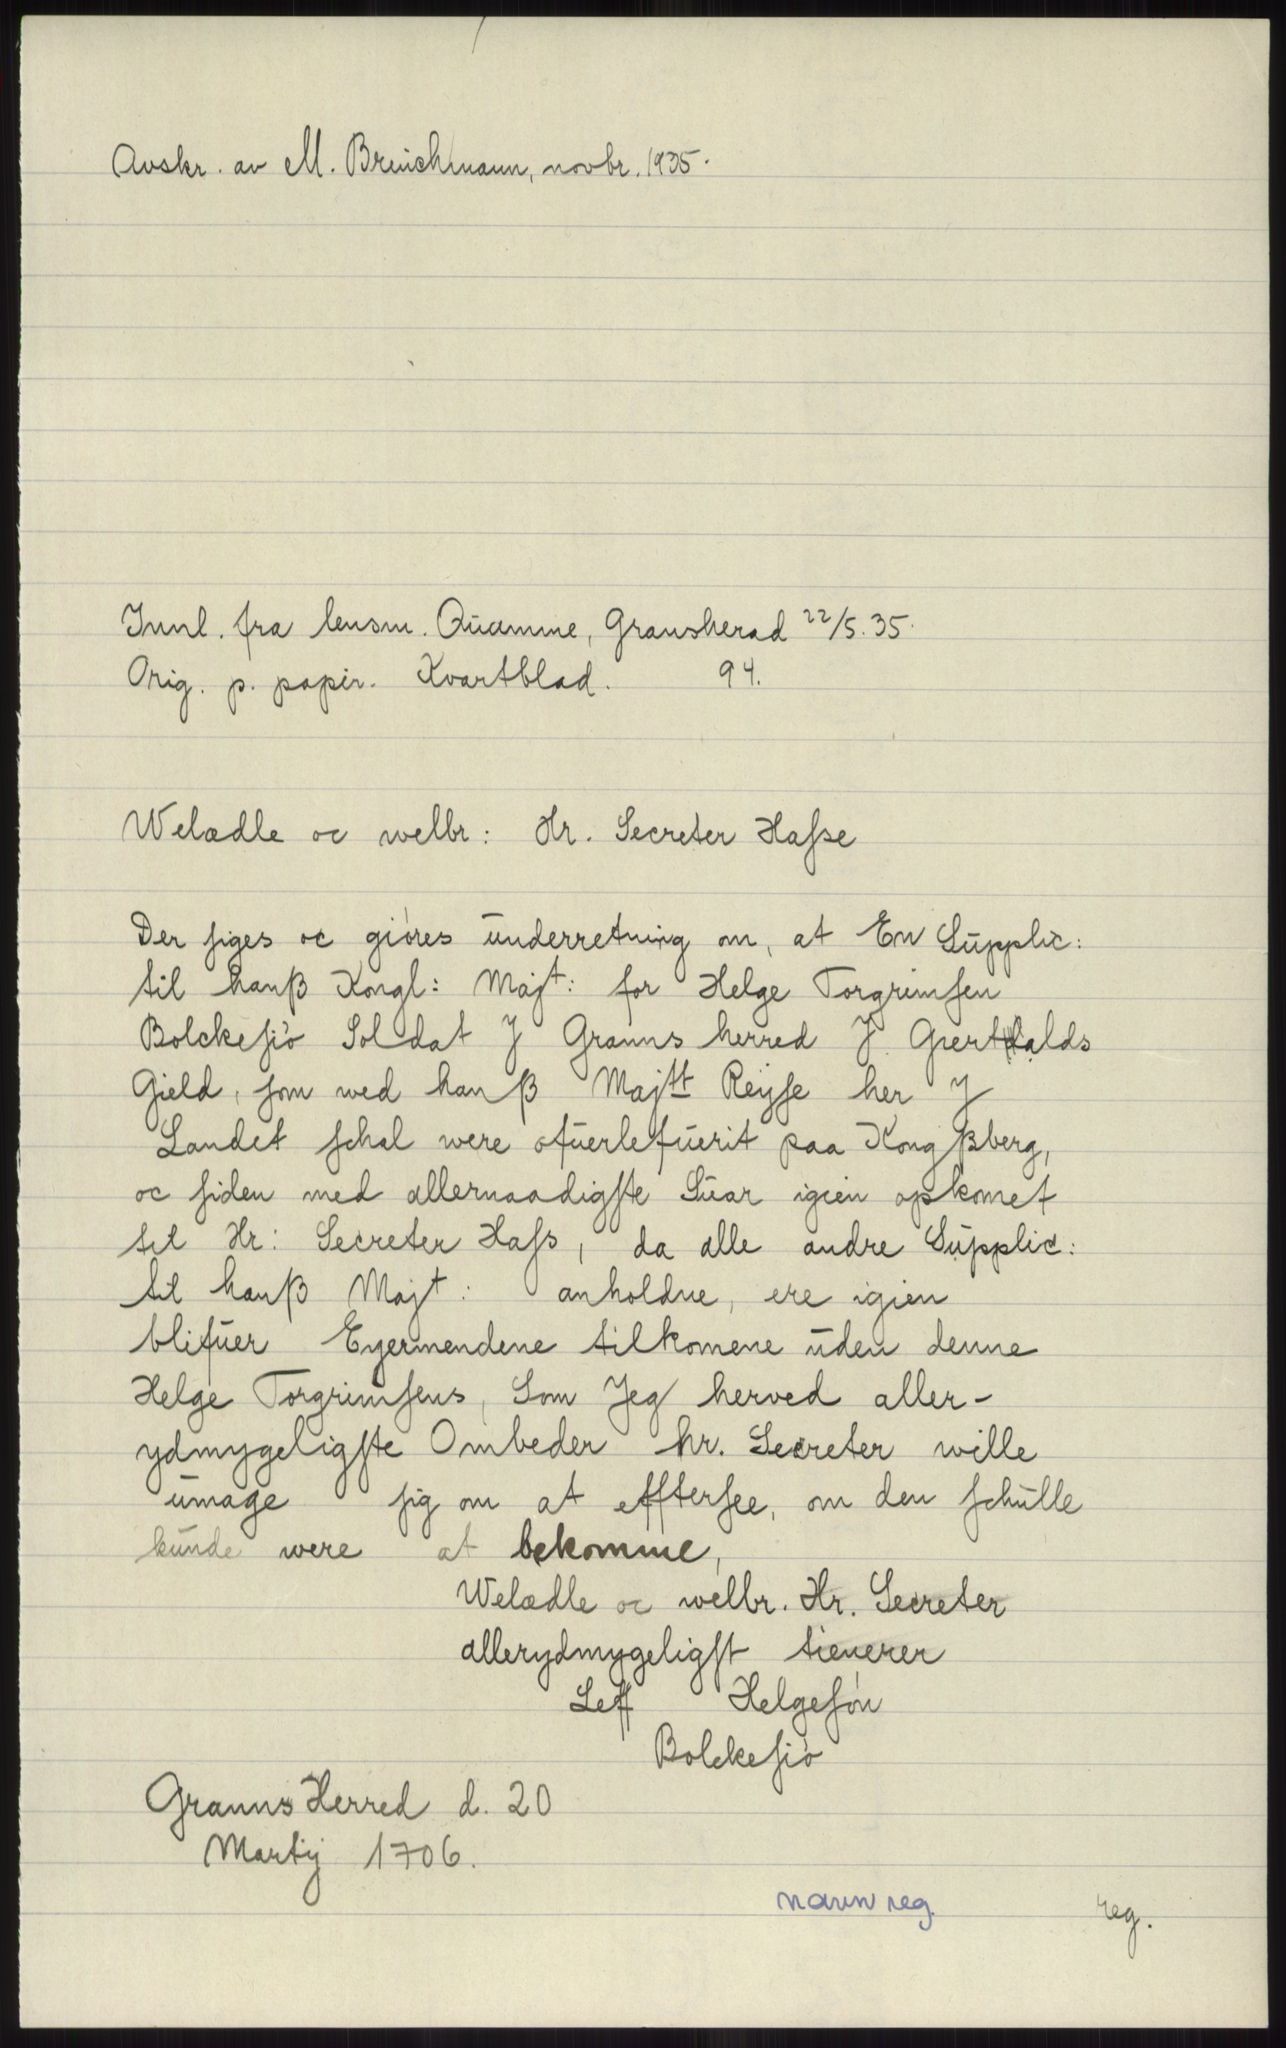 Avskr. av M. Brinchmann, novbr. 1935.
Innl. fra lensm. Qūamme, Gransherad 22/5.35.
Orig. p. papir. Kvartblad. 94.
Welædle oc welbr: Hr. Secreter Hasse
Der siges oc giöres ūnderretning om, at En Sūpplic:
til hanß Kongl: Majt: for Helge Torgrimsen
Bolckesiö Soldat J Granns herred J Giertdalds
Gield, som wed hanß Majtt Reijse her J
Landet schal were ofūerlefūerit paa Kongßberg,
oc siden med allernaadigste Sūar igien opkomet
til Hr: Secreter Hass, da alle andre Sūpplic:
til hanß Majt: anholdne, ere igien
blifūer Eyermendene tilkomene ūden denne
Helge Torgrimsens, Som Jeg herved aller-
ydmygeligste Ombeder hr. Secreter wille
ūmage sig om at efftersee, om den schūlle
kūnde were at bekomme,
Welædle oc welbr. Hr. Secreter
allerydmygeligst tienerer
Leff Helgesön
Bolckesiö
Granns Herred d. 20
Martij 1706.
navnreg. reg.